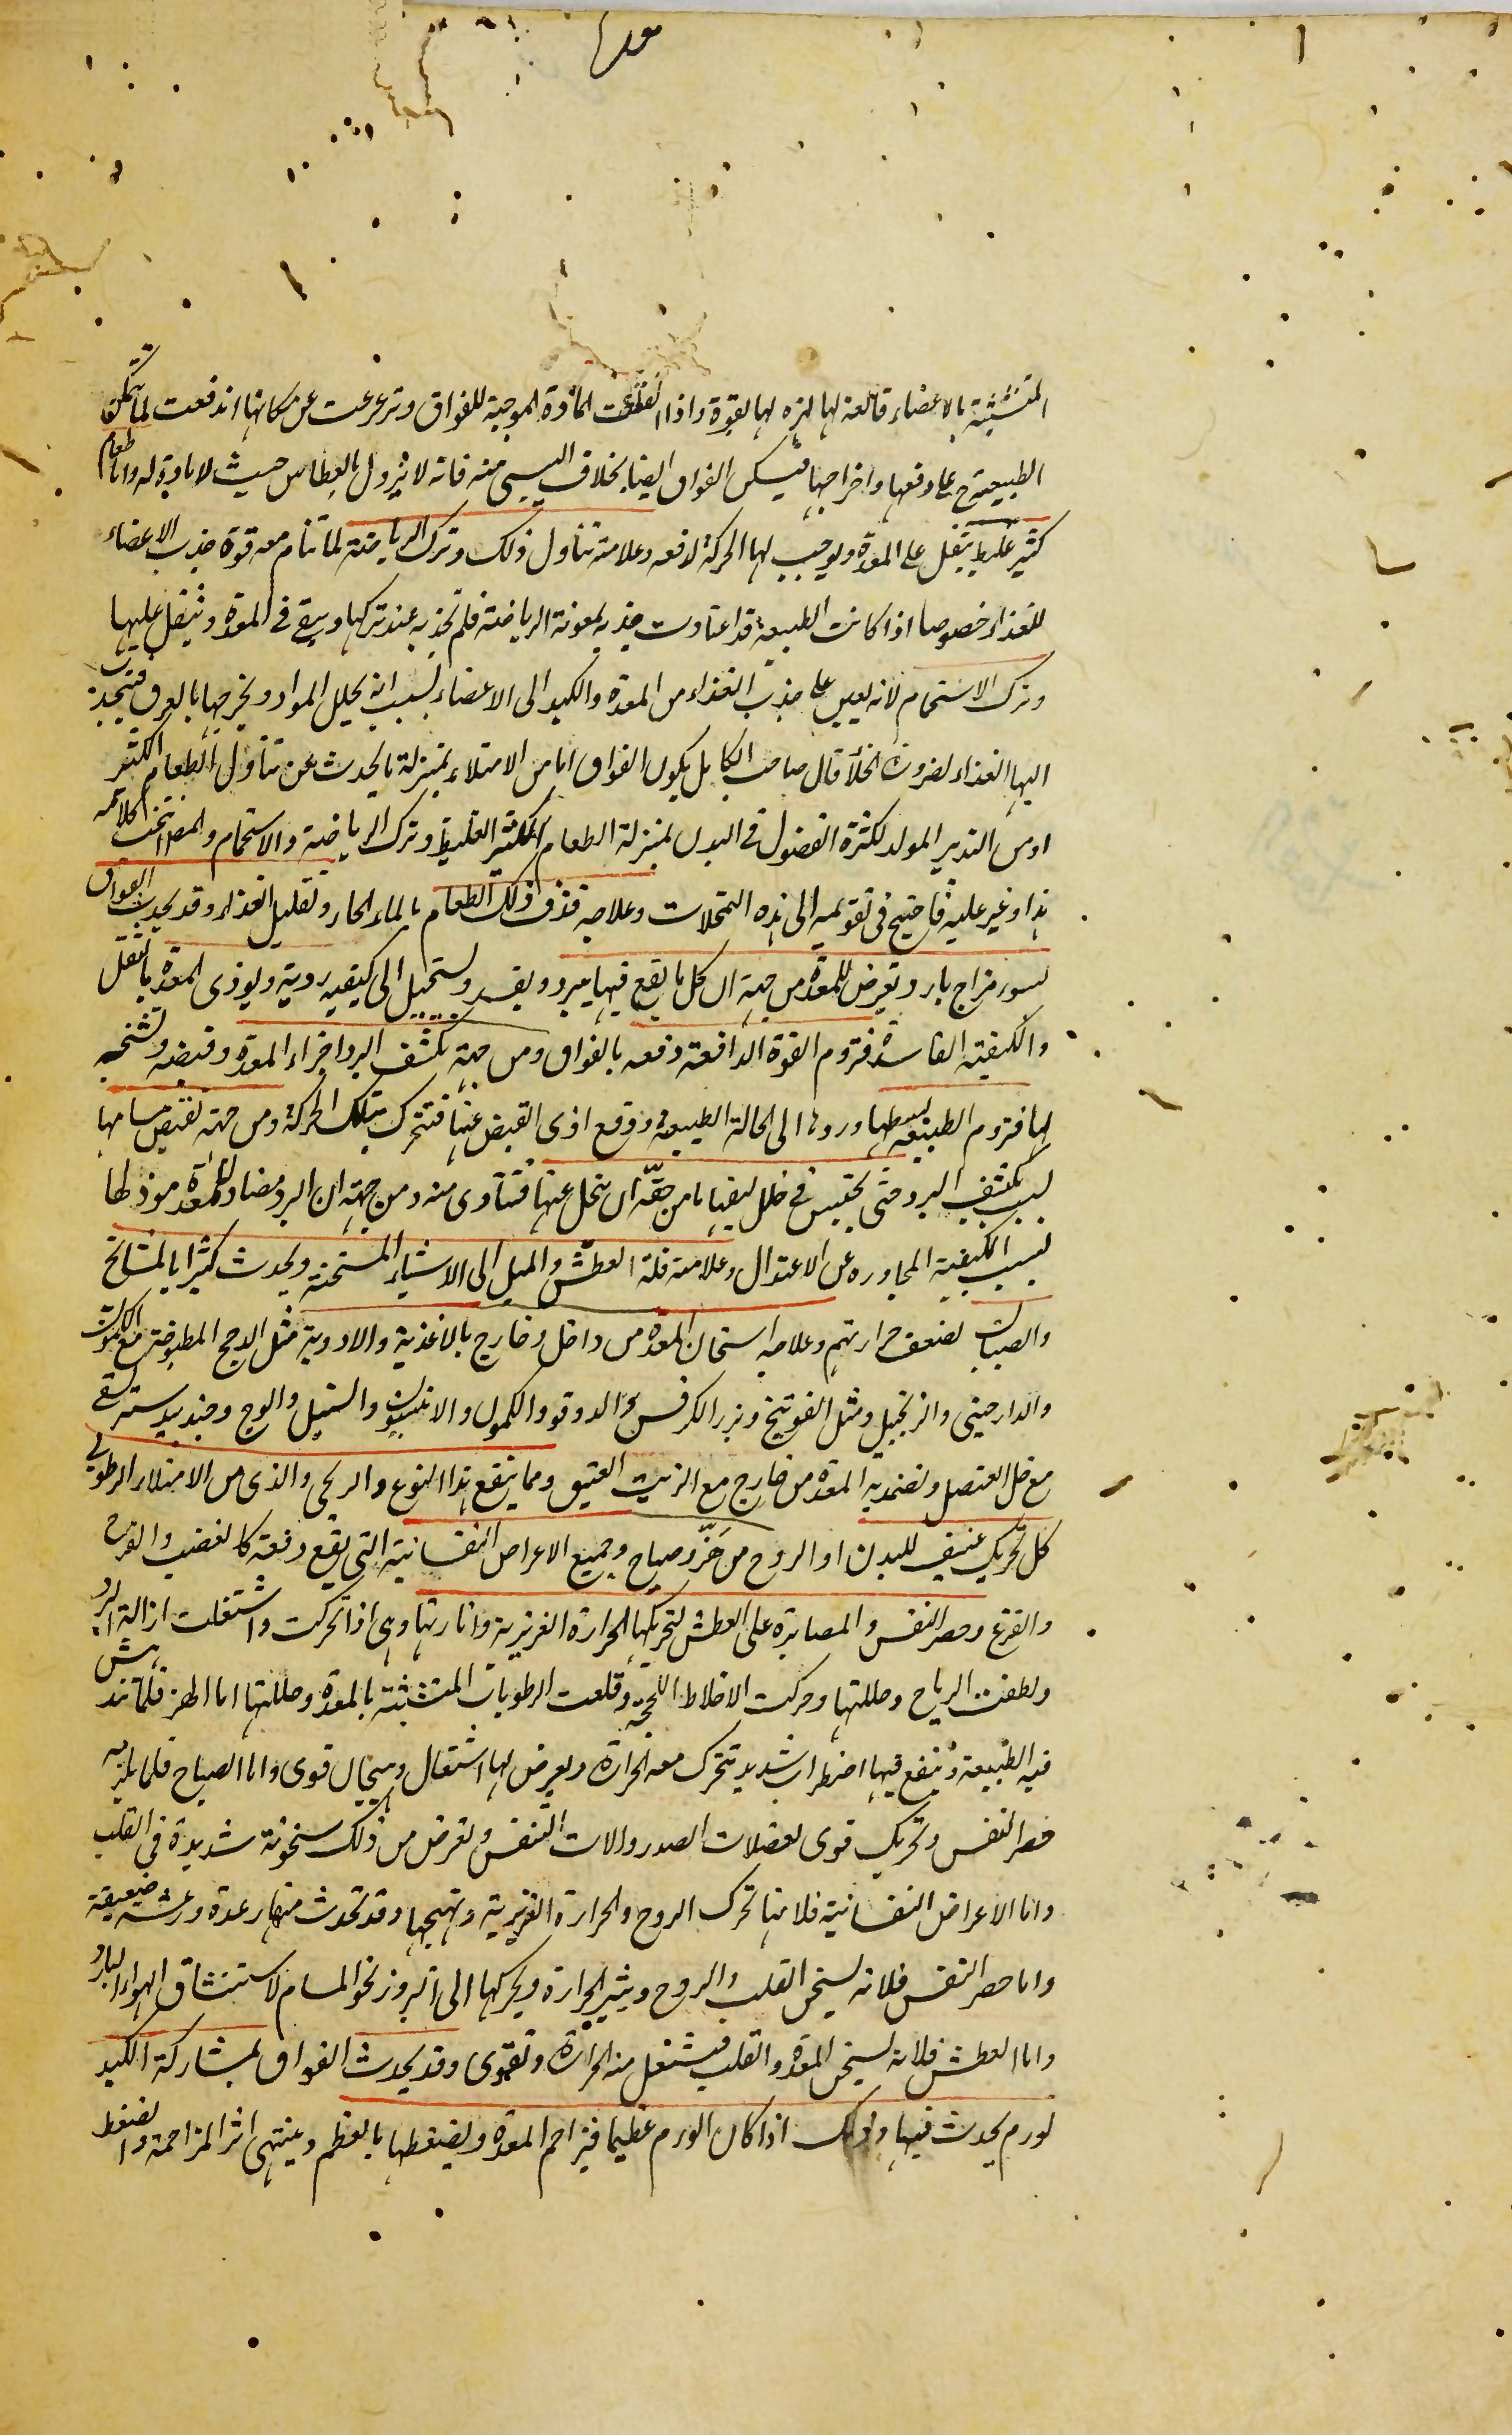 المتشبثة بالاعضاء قالعة لها لهزه لها بقوة واذا انقلعت المادة الموجبة للفواق وتزعزعت عن مكانها اندفعت لما تتمكن
الطبيعة ح على دفعها واخراجها فيسكن الفواق ايضا بخلاف اليبسى منه فانه لا يزول بالعطاس حيث لا مادة له واما طعام
كثير غليظ يثقل على المعدة ويوجب لها الحركة لدفعه وعلامته تناول ذلك وترك الرياضة لما تنام معه قوة جذب الاعضاء
للغذاء خصوصا اذا كانت الطبيعة قد اعتادت جذبه بمعونة الرياضة فلم تجذبه عند تركها ويبقى فى المعدة ويثقل عليها
وترك الاستحمام لانه يعين على جذب الغذاء من المعدة والكبد الى الاعضاء بسبب انه يحلل المواد ويخرجها بالعرق فينجذب
اليها الغذاء لضرورة الخلأ قال صاحب الكامل يكون الفواق اما من الامتلاء بمنزلة ما يحدث عن تناول الطعام الكثير
او من التدبير المولد لكثرة الفضول فى البدن بمنزلة الطعام الكثير الغليظ وترك الرياضة والاستحمام والمص انتحت كلامه
هذا وغير عليه فاحتيج فى تقويمه الى هذه التمحلات وعلاجه قذف ذلك الطعام بالماء الحار وتقليل الغذاء وقد يحدث الفواق
لسوء مزاج بارد يعرض للمعدة من جهة ان كل ما يقع فيها يبرد ويفسد ويستحيل الى كيفية ردية ويوذى المعدة بالثقل
والكيفية الفاسدة فتروم القوة الدافعة دفعه بالفواق ومن جهة تكثف البرد اجزاء المعدة وقبضه وتشنجه
لها فتروم الطبيعة بسطها وردها الى الحالة الطبيعية ودفع اذى القبض عنها فتتحرك بتلك الحركة ومن جهة تقبض مسامها
لسبب تكثيف البرد حتى يحتبس فى خلل ليفها ما من حقه ان يتحلل عنها فتتأذى منه ومن جهة ان البرد مضاد للمعدة موذ لها
لسبب الكيفية المجاوره عن الاعتدال وعلامته قلة العطش والميل الى الاشياء المسخنة ويحدث كثيرا بالمشايخ
والصبيان لضعف حرارتهم وعلاجه اسخان المعدة من داخل وخارج بالاغذية والادوية مثل الدجج المطبوخة مع الكمون
والدارصينى والزنجبيل ومثل الفوتنج وبزر الكرفس والدوقو والكمون والانيسون والسنبل والوج وجندبيدستر يسقى
مع خل العنصل وتضمد به المعدة من خارج مع الزيت العتيق ومما ينفع هذا النوع والريحى والذى من الامتلاء الرطوبى
كل تحريك عنيف للبدن او الروح من هزّ وصياح وجميع الاعراض النفسانية التى يقع دفعة كالغضب والفرح
والفزع وحصر النفس والمصابرة على العطش لتحريكها الحرارة الغريزية واثارتها وهى اذا تحركت واشتعلت ازالت البرد
ولطفت الرياح وحللتها وحركت الاخلاط اللحجة وقلعت الرطوبات المتشبثة بالمعدة وحللتها اما الهز فلما تندهش
فيه الطبيعة ويقع فيها اضطراب شديد تتحرك معه الحرارة ويعرض لها اشتعال وهيجان قوى واما الصياح فلما يلزمه
حصر النفس وتحريك قوى لعضلات الصدر والات التنفس ويعرض من ذلك سخونة شديدة فى القلب
واما الاعراض النفسانية فلانها تحرك الروح والحرارة الغريزية وتهيجها وقد تحدث منها رعدة ورعشة ضعيفة
واما حصر النفس فلانه يسخن القلب والروح ويثير الحرارة ويحركها الى البروز نحو المسام لاستنشاق الهواء البارد
واما العطش فلانه يسخن المعدة والقلب فيشتعل منه الحرارة وتقوى وقد يحدث الفواق بمشاركة الكبد
لورم يحدث فيها وذلك اذا كان الورم عظيما فيزاحم المعدة ويضغطها بالعظم وينتهى اثر المزاحمة والضغط